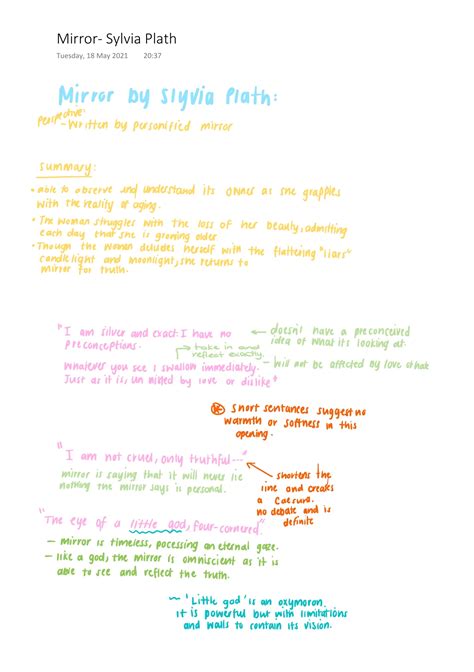 Mirror- Sylvia Plath
Tuesday, 18 May 2021 20:37
Mirror by Slyvia Plath:
perspective:
- Written by personified mirror
summary:
• able to observe and understand its owner as she grapples
with the reality of aging.
• The woman struggles with the loss of her beauty, admitting
each day that she is growing older
• Though the women deludes herself with the flattering "liars"
candlelight and moonlight, she returns to
mirror for truth.
"I am silver and exact. I have no
preconceptions.
← doesn't have a preconceived
idea of what its looking at.
→ take in and
reflect exactly.
Whatever you see I swallow immediately.
Just as it is, un misted by love or dislike"
- Will not be affected by love or hate
⊛ Short sentences suggest no
warmth or softness in this
opening.
"I am not cruel, only truthful---"
mirror is saying that it will never lie
nothing the mirror says is personal.
shortens the
line and creats
a Caesura.
no debate and is
definite
"The eye of a little god, four-cornerrd."
- mirror is timeless, pocessing an eternal gaze.
- like a god, the mirror is omniscient as it is
able to see and reflect the truth.
~ 'Little god' is an oxymoron.
it is powerful but with limitations
and walls to contain its vision.